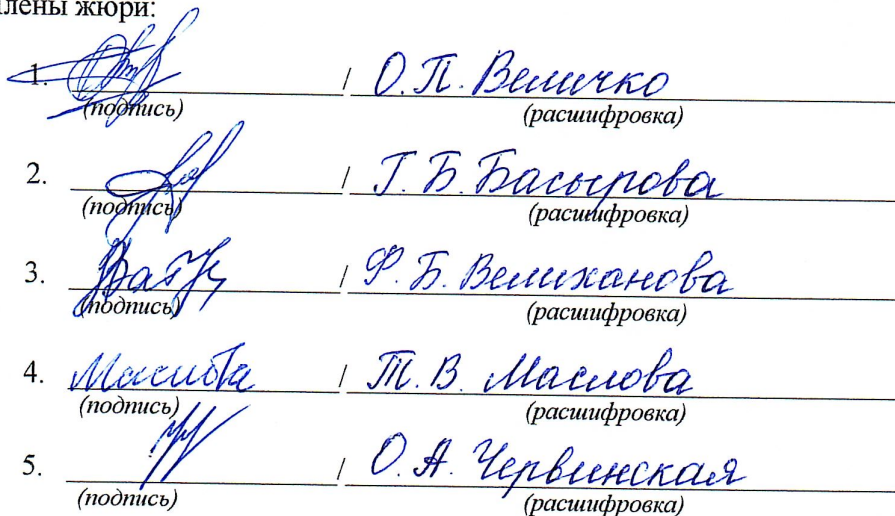 лены жюри:
1. / О.П. Величко
(подпись) (расшифровка)
2. / Г. Б. Басырова
(подпись) (расшифровка)
3. / Ф. Б. Велиханова
(подпись) (расшифровка)
4. / Т. В. Маслова
(подпись) (расшифровка)
5. / О. А. Червинская
(подпись) (расшифровка)